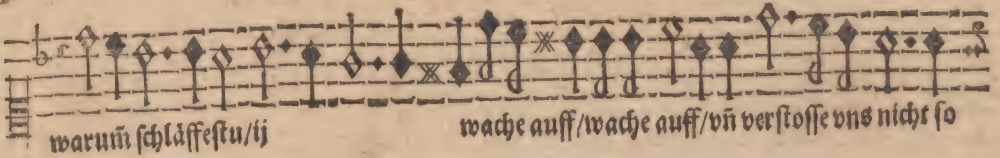 warum̃ schläffestu/ij wache auff/wache auff/vñ verstosse vns nicht so